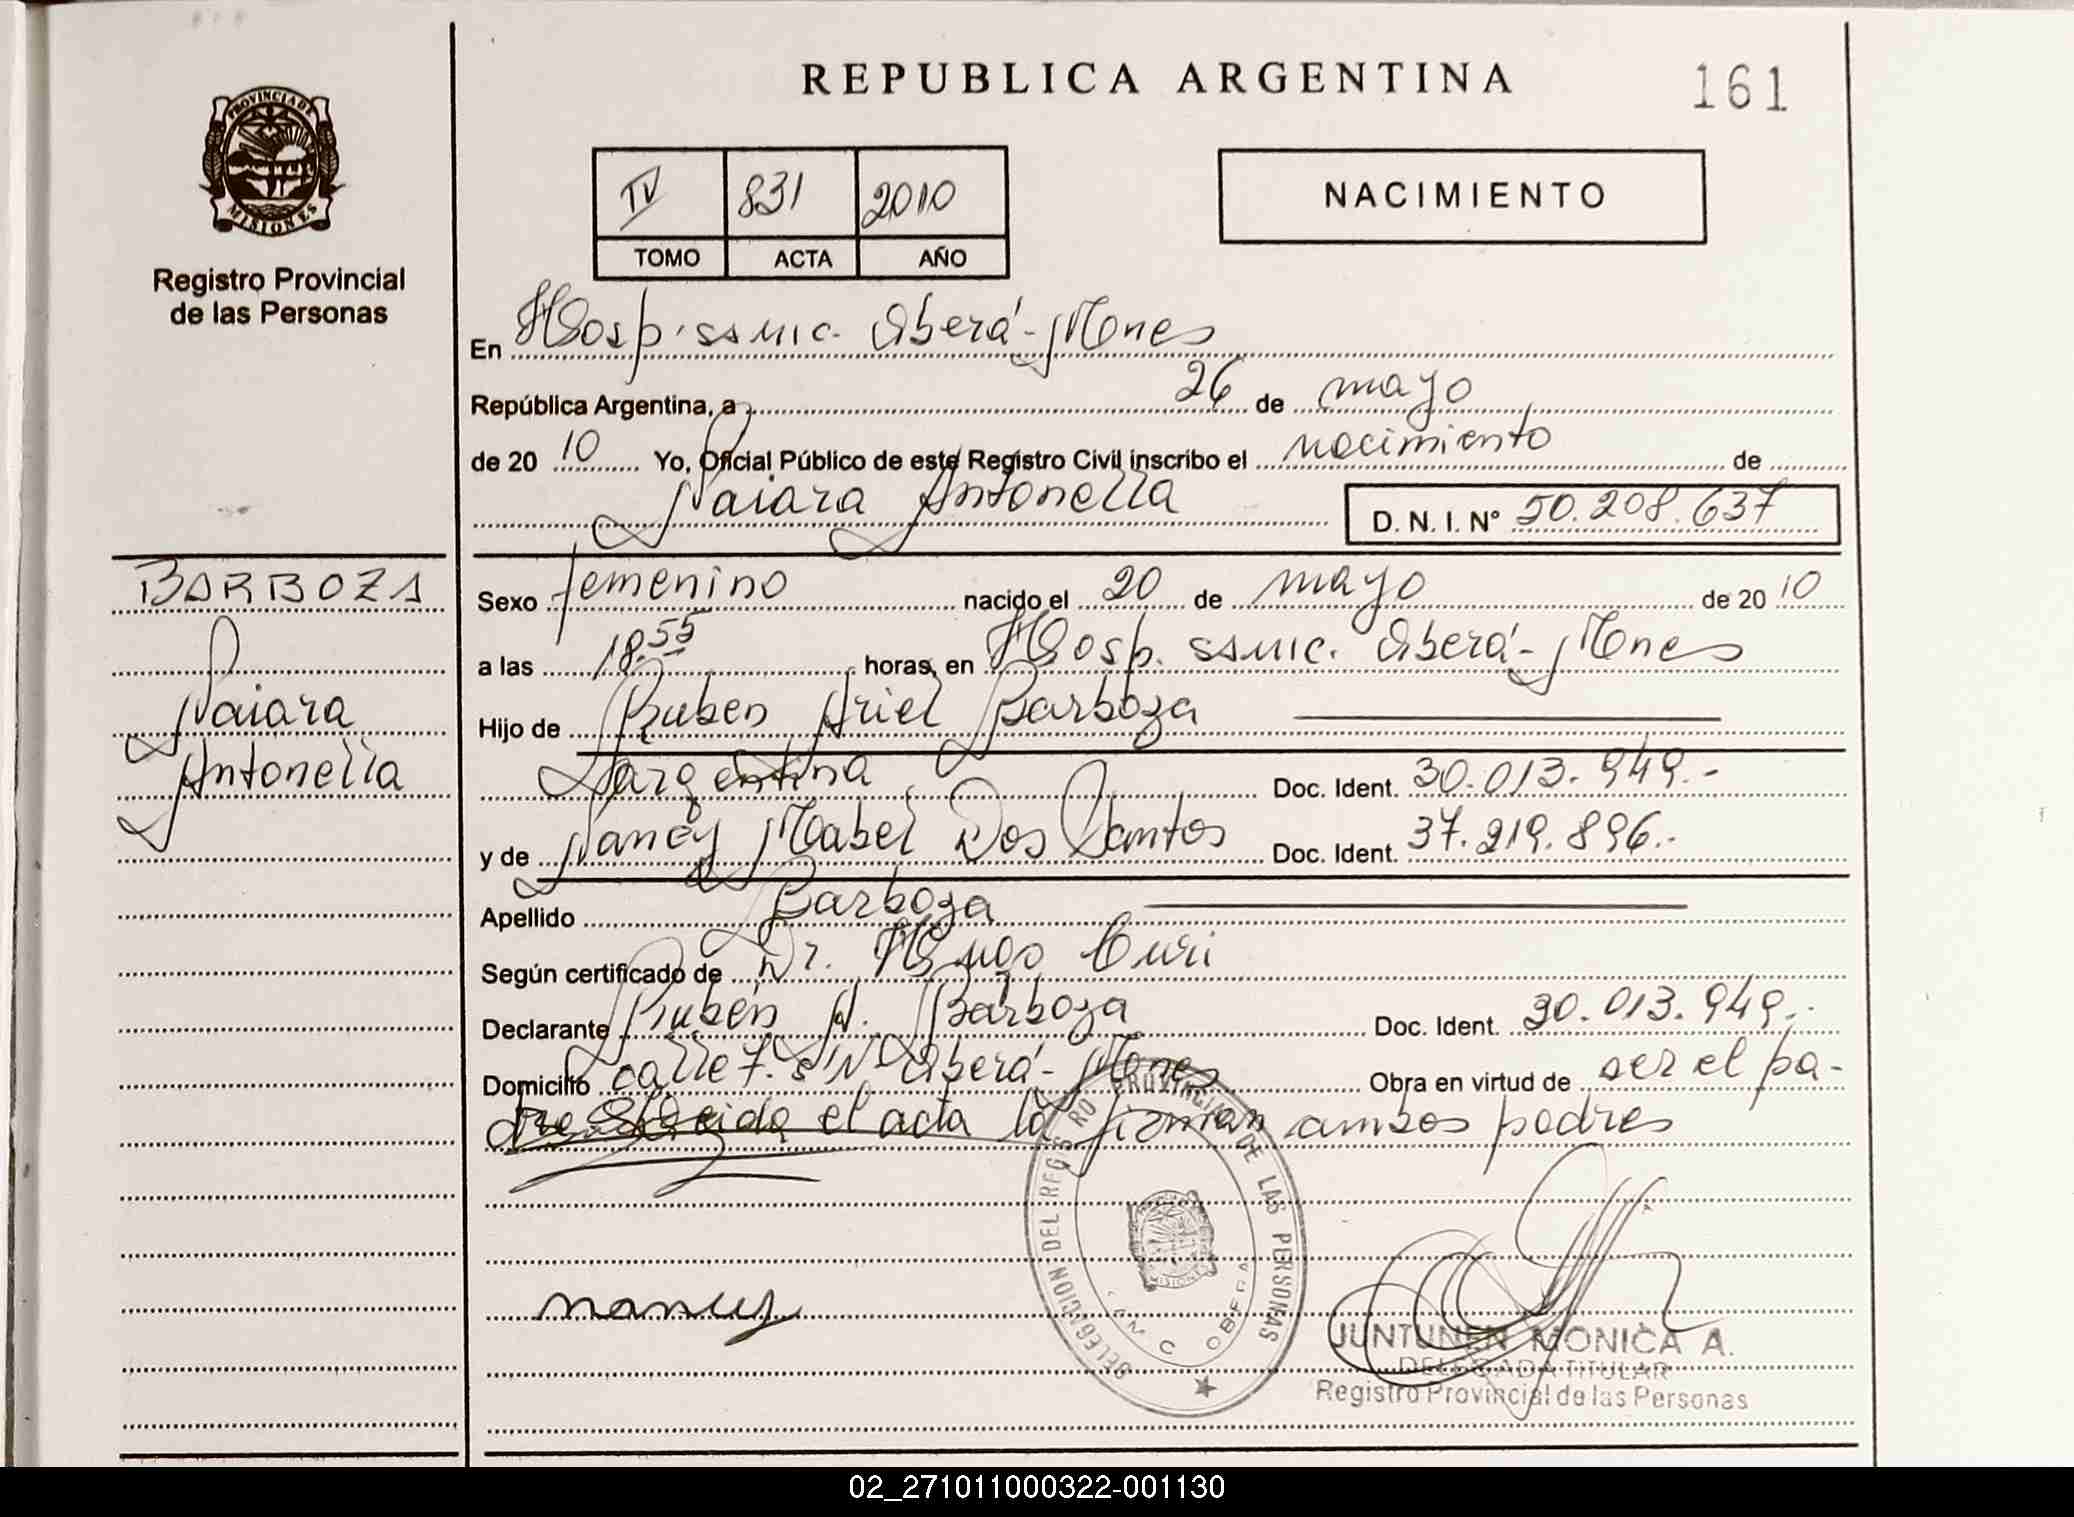 REPUBLICA ARGENTINA
161
PROVINCIA DE MISIONES
Registro Provincial
de las Personas
IV 831 2010
TOMO ACTA AÑO
NACIMIENTO
En Hosp. ssmic. Oberá - Mnes
República Argentina, a 26 de mayo
de 20 10 Yo, Oficial Público de este Registro Civil inscribo el nacimiento de
Naiara Antonella D. N. I. Nº 50.208.637
BARBOZA
Naiara
Antonella
Sexo femenino nacido el 20 de mayo de 20 10
a las 18.55 horas, en Hosp. ssmic. Oberá - Mnes
Hijo de Ruben Ariel Barboza
argentina Doc. Ident. 30.013.949.-
y de Nancy Mabel Dos Santos Doc. Ident. 37.219.896.-
Apellido Barboza
Según certificado de Dr. Hugo Curi
Declarante Ruben A. Barboza Doc. Ident. 30.013.949.-
Domicilio calle 7. s/Nº Oberá - Mnes Obra en virtud de ser el pa-
dre. Leida el acta la firman ambos padres
DELEGACION DEL REGISTRO PROVINCIAL DE LAS PERSONAS
OBERA
MISIONES
nancy
JUNTUNEN MONICA A.
DELEGADA TITULAR
Registro Provincial de las Personas
02_271011000322-001130